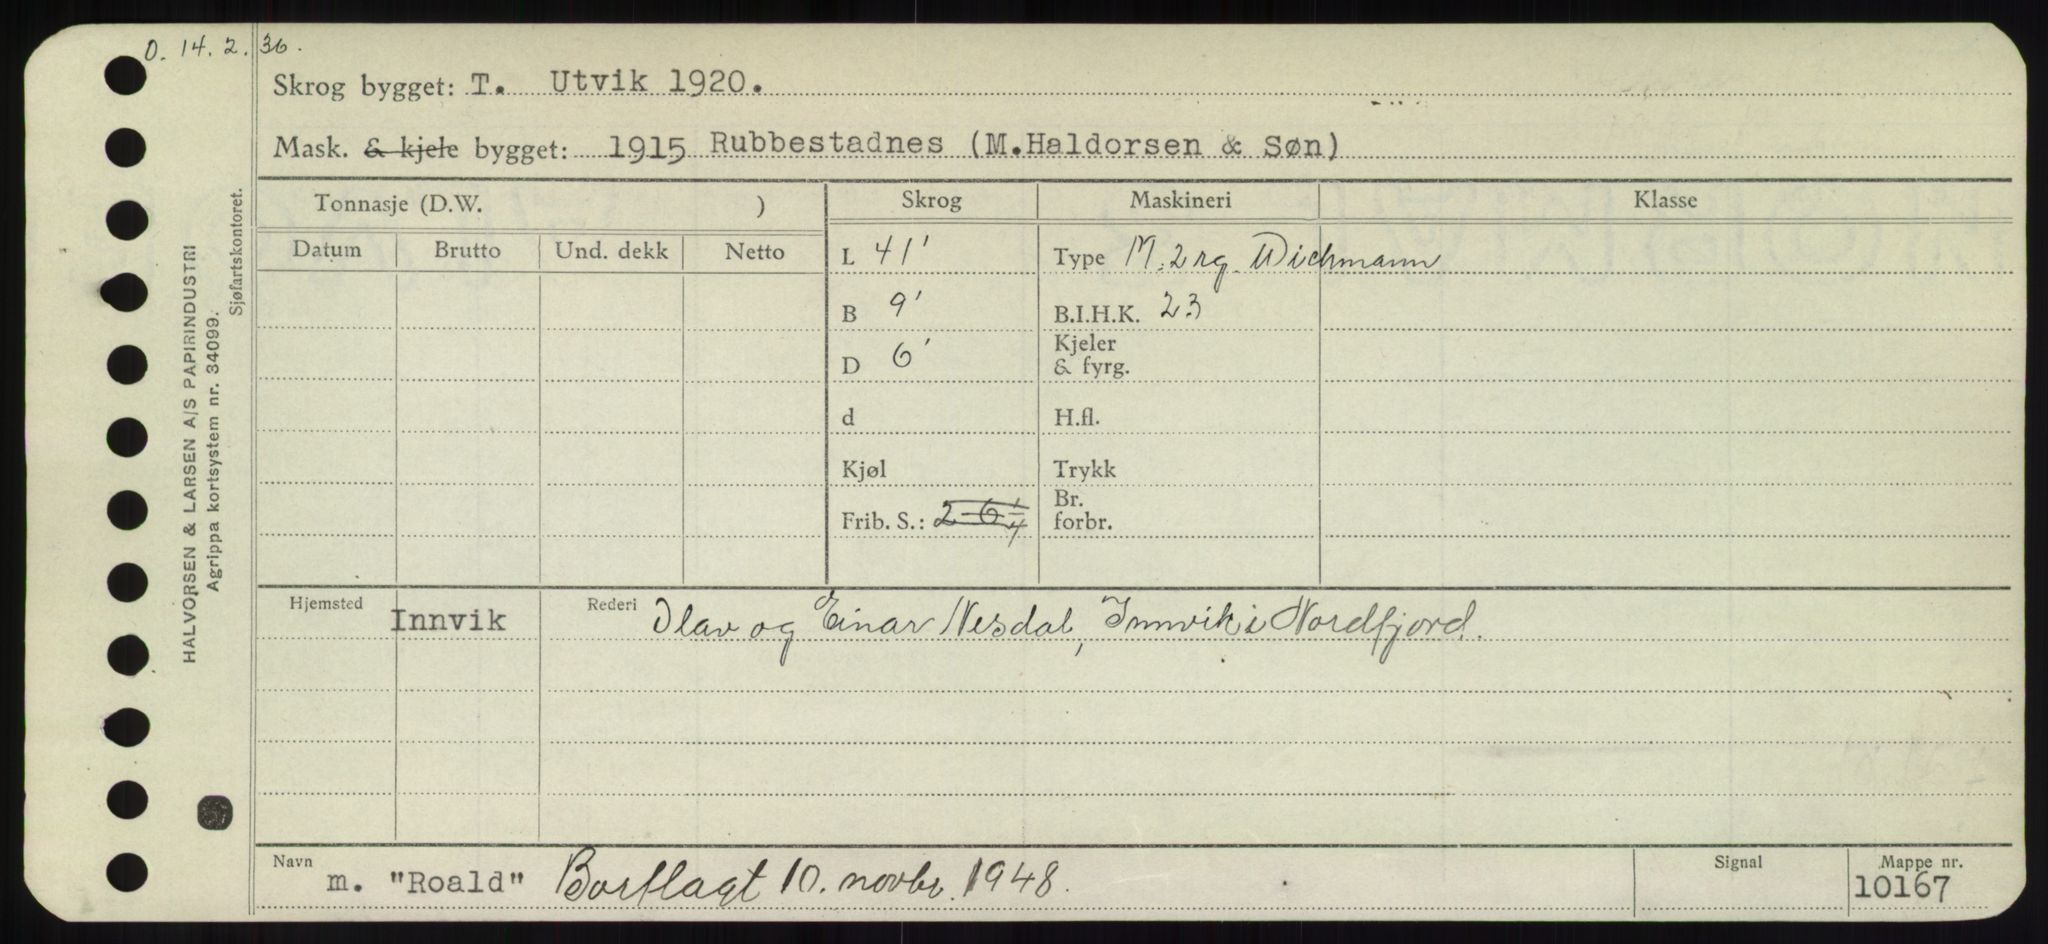 O. 14. 2. 36.
Skrog bygget: T. Utvik 1920.
Mask. & kjele bygget: 1915 Rubbestadnes (M.Haldorsen & Søn)
Tonnasje (D.W. ) Skrog Maskineri Klasse
Datum Brutto Und. dekk Netto
L 41' Type M. 2 rg. Wichmann
B 9' B.I.H.K. 23
D 6' Kjeler & fyrg.
d H.fl.
Kjøl Trykk
Frib. S.: 2-6 1/4 Br. forbr.
Hjemsted Innvik Rederi Olav og Einar Nesdal, Innvik i Nordfjord.
Navn m. "Roald" Bortlagt 10. novbr. 1948. Signal Mappe nr. 10167
HALVORSEN & LARSEN A/S PAPIRINDUSTRI
Agrippa kortsystem nr. 34099.
Sjøfartskontoret.